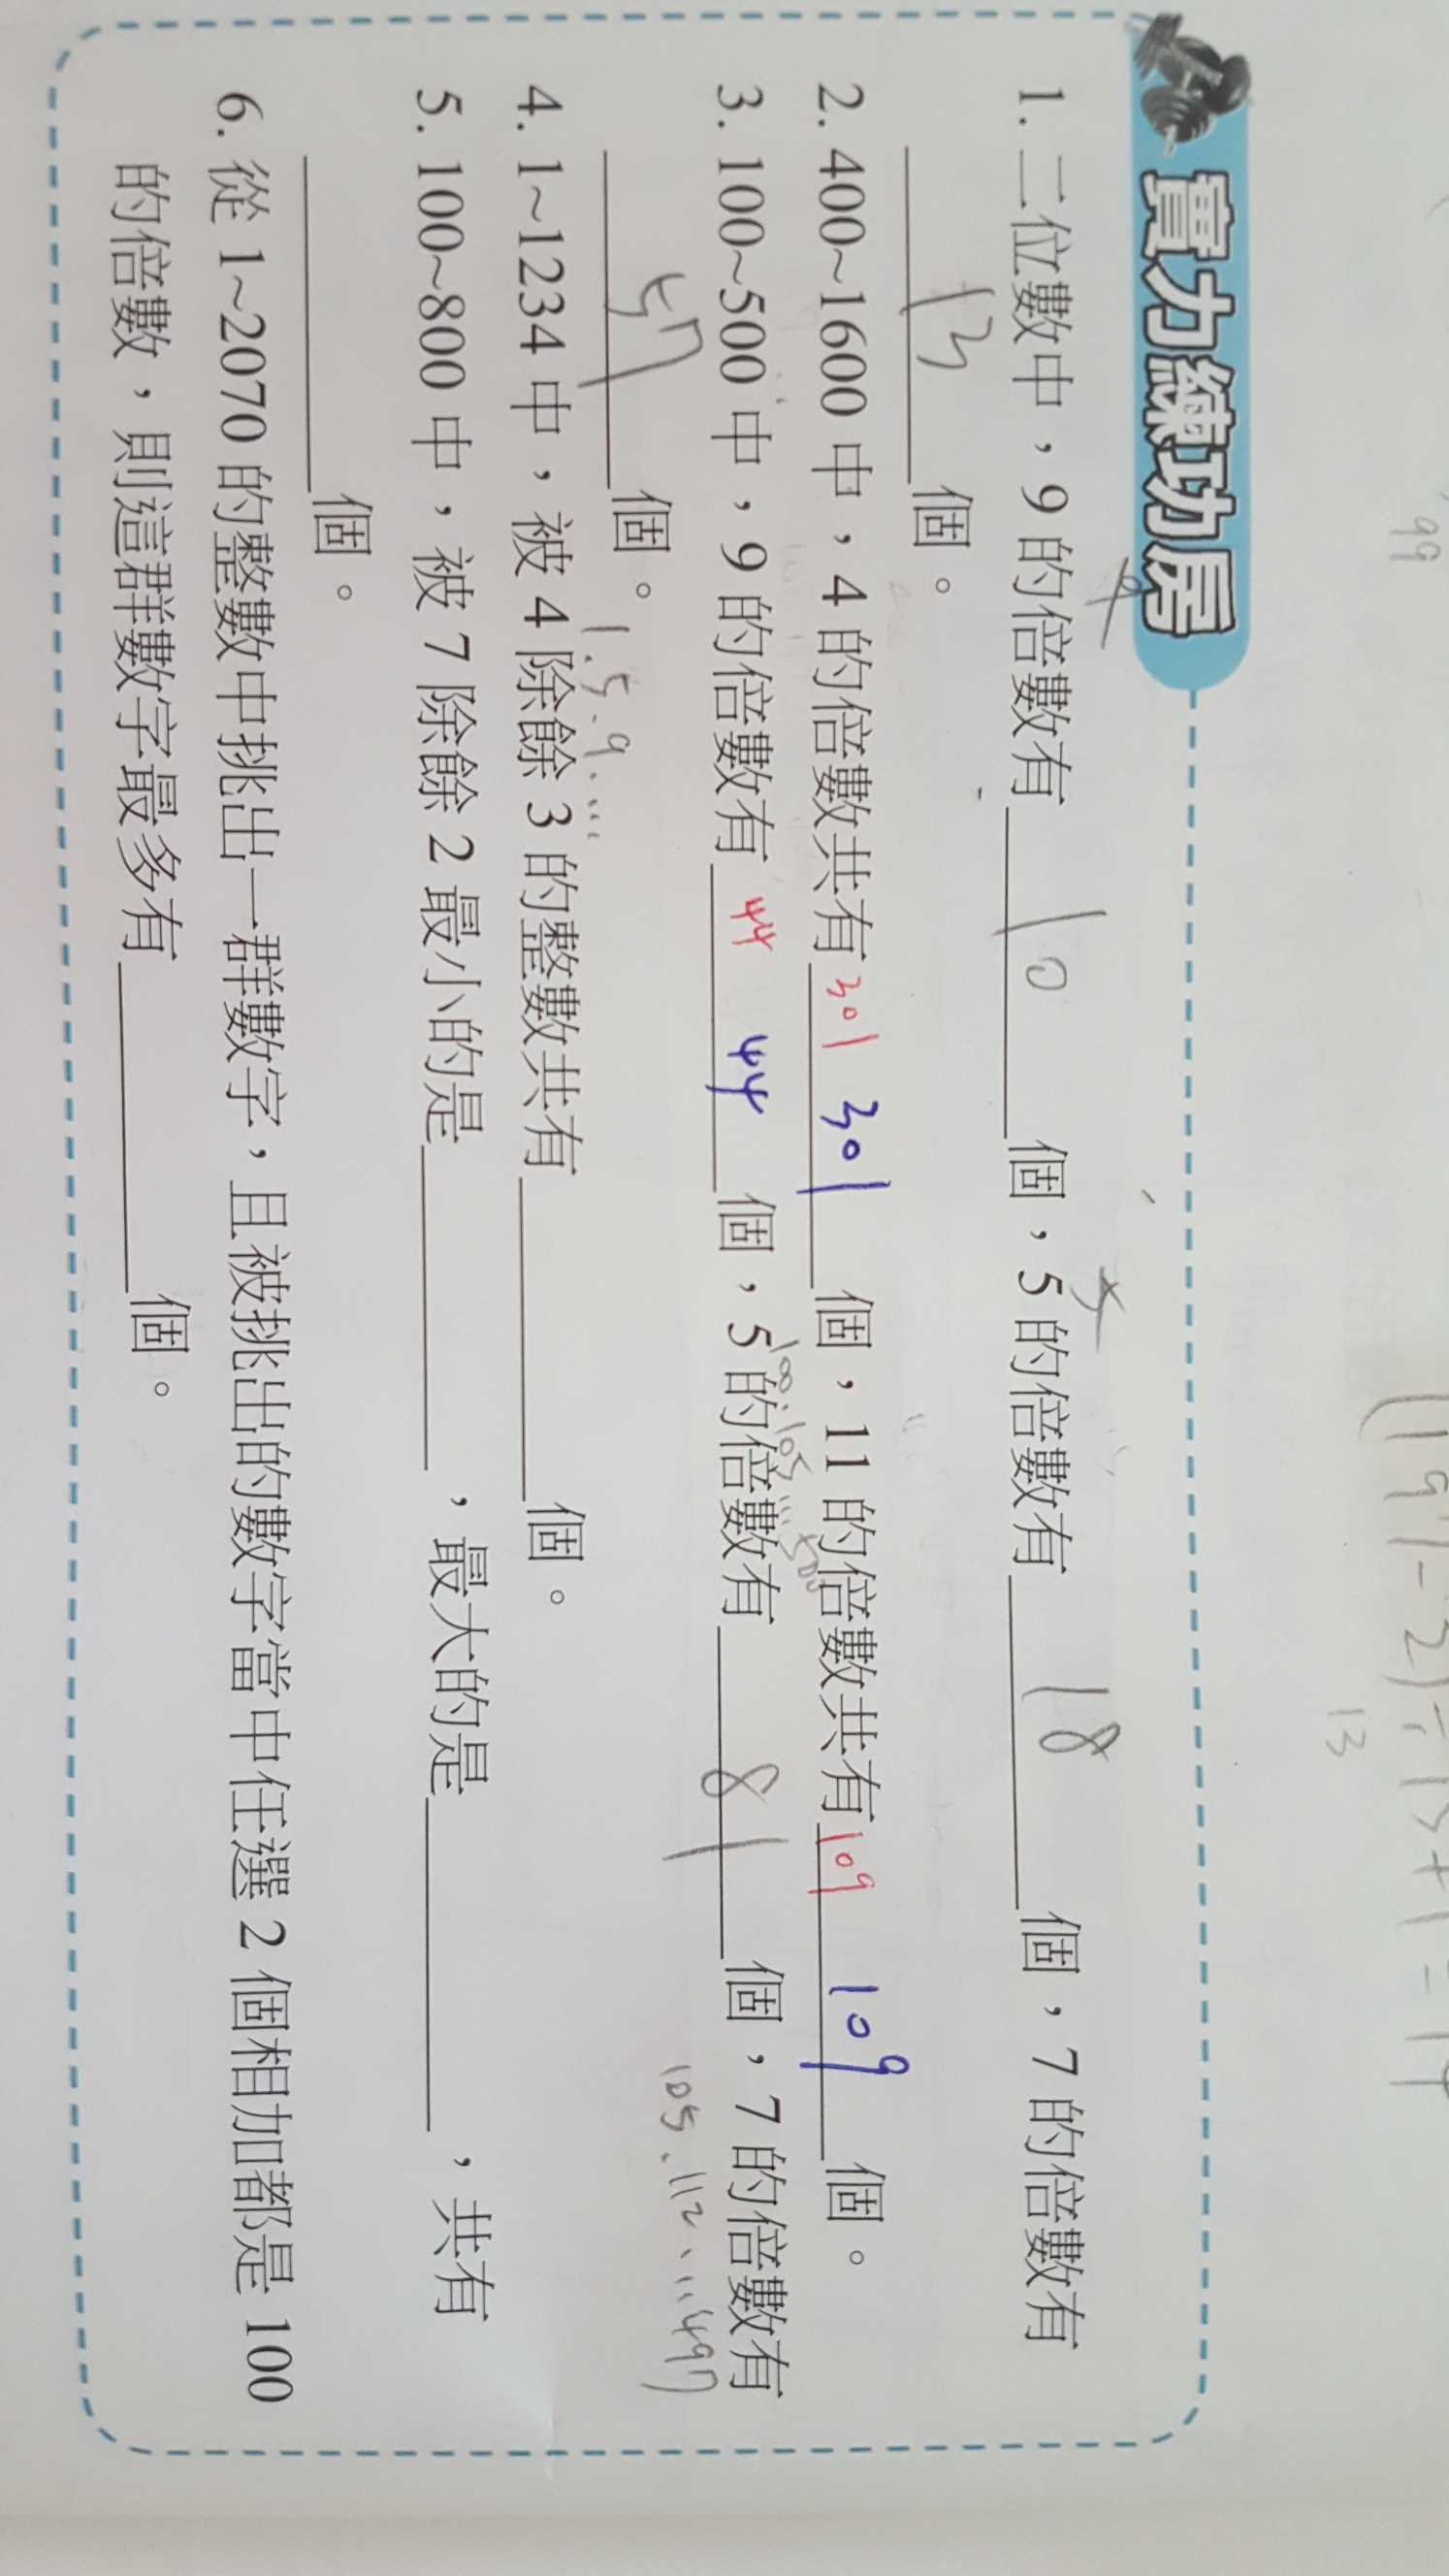 實力練功房
99
13
1. 二位數中，9 的倍數有 10 個，5 的倍數有 18 個，7 的倍數有
13 個。
2. 400~1600 中，4 的倍數共有 301 301 個，11 的倍數共有 109 109 個。
100.105....500
3. 100~500 中，9 的倍數有 44 44 個，5 的倍數有 81 個，7 的倍數有
57 個。
105.112、...497
1.5.9....
4. 1~1234 中，被 4 除餘 3 的整數共有 個。
5. 100~800 中，被 7 除餘 2 最小的是 ，最大的是 ，共有
個。
6. 從 1~2070 的整數中挑出一群數字，且被挑出的數字當中任選 2 個相加都是 100
的倍數，則這群數字最多有 個。